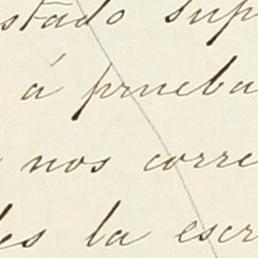 stado sup
á prueba
nos corre
les la escr